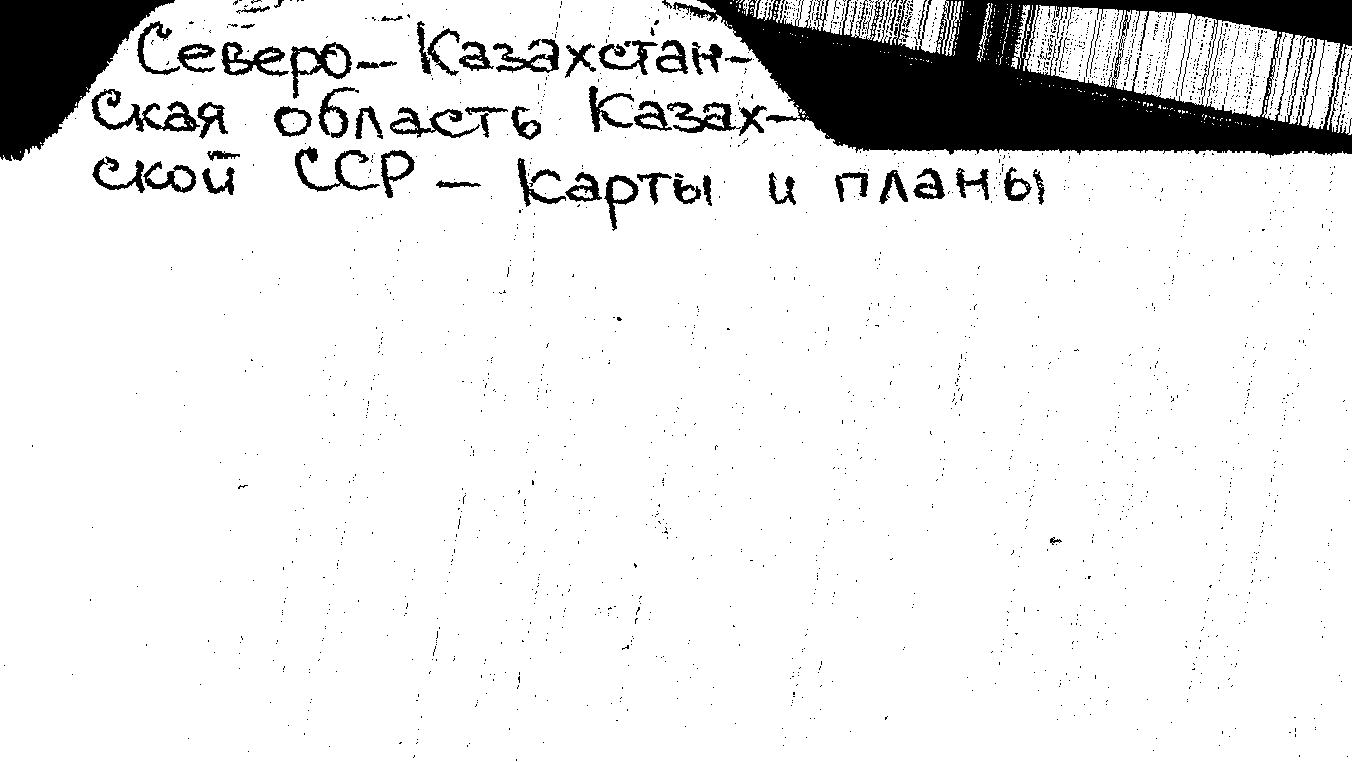 Северо-Казахстан-
ская область Казах-
ской ССР - Карты и планы